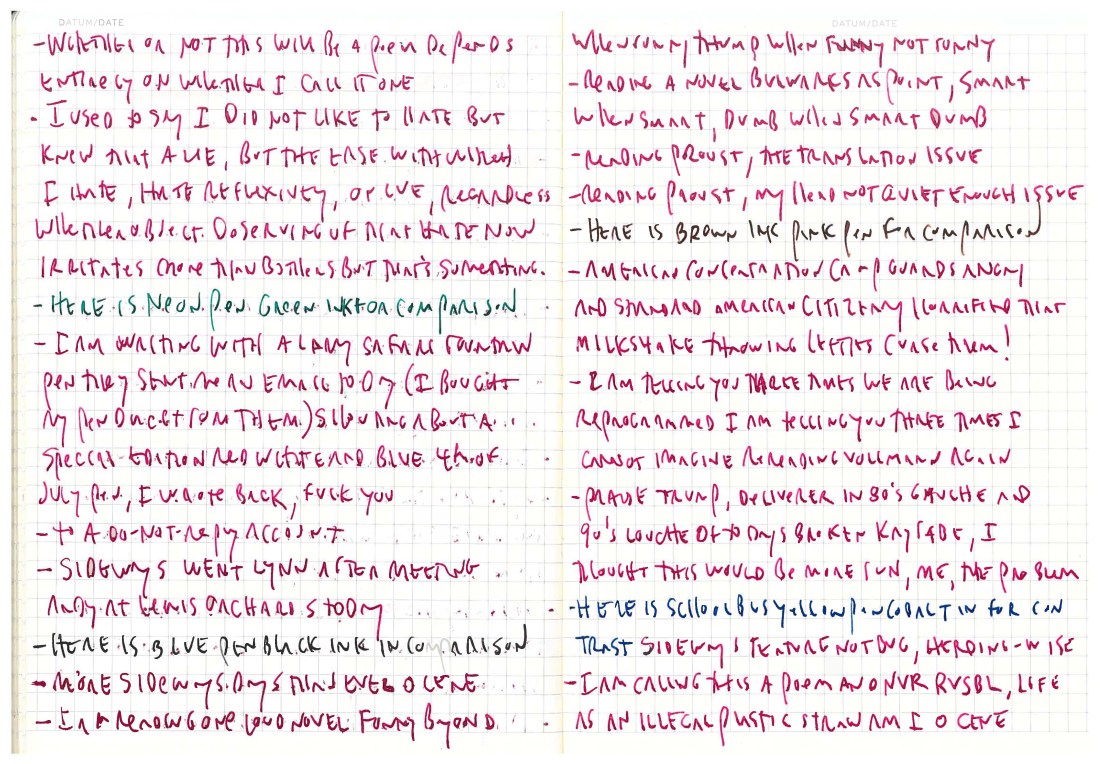 DATUM/DATE
- WHETHER OR NOT THIS WILL BE A POEM DEPENDS
ENTIRELY ON WHETHER I CALL IT ONE
- I USED TO SAY I DID NOT LIKE TO HATE BUT
KNEW THAT A LIE, BUT THE EASE WITH WHICH
I HATE, HATE REFLEXIVELY, OR LOVE, REGARDLESS
WHETHER OBJECT DESERVING OF THAT HATE NOW
IRRITATES MORE THAN BOTHERS BUT THAT'S SOMETHING.
- HERE IS NEON PEN GREEN INK FOR COMPARISON
- I AM WRITING WITH A LAMY SAFARI FOUNTAIN
PEN THEY SENT ME AN EMAIL TODAY (I BOUGHT
MY PEN ONCE FROM THEM) SHOUTING ABOUT A
SPECIAL-EDITION RED WHITE AND BLUE 4th OF
JULY PEN, I WROTE BACK, FUCK YOU
- TO A DO-NOT-REPLY ACCOUNT
- SIDEWAYS WENT LYNN AFTER MEETING
ANDY AT LEWIS ORCHARDS TODAY
- HERE IS BLUE PEN BLACK INK IN COMPARISON
- MORE SIDEWAYS DAYS THIS
- I AM READING ONE LOUD NOVEL FUNNY BEYOND
DATUM/DATE
WHEN FUNNY TRUMP WHEN FUNNY NOT FUNNY
- READING A NOVEL BULWARKS AS POINT, SMART
WHEN SMART, DUMB WHEN SMART DUMB
- READING PROUST, THE TRANSLATION ISSUE
- READING PROUST, MY HEAD NOT QUIET ENOUGH ISSUE
- HERE IS BROWN INK PINK PEN FOR COMPARISON
- AMERICAN CONCENTRATION CAMP GUARDS ANGRY
AND STANDARD AMERICAN CITIZENRY HORRIFIED THAT
MILKSHAKE THROWING LEFTIES CURSE THEM!
- I AM TELLING YOU THREE TIMES WE ARE BEING
REPROGRAMMED I AM TELLING YOU THREE TIMES I
CANNOT IMAGINE REREADING VOLLMANN AGAIN
- PRAISE TRUMP, DELIVERER IN 80'S GAUCHE AND
90'S LOUCHE OF TODAY'S BROKEN KAYFABE, I
THOUGHT THIS WOULD BE MORE FUN, ME, THE PROBLEM
- HERE IS SCHOOLBUS YELLOW PEN COBALT IN FOR CON
TRAST SIDEWAYS FEATURE NOT BUG, HERDING-WISE
- I AM CALLING THIS A POEM AND NVR RVSBL, LIFE
AS AN ILLEGAL PLASTIC STRAW AM I O CENE